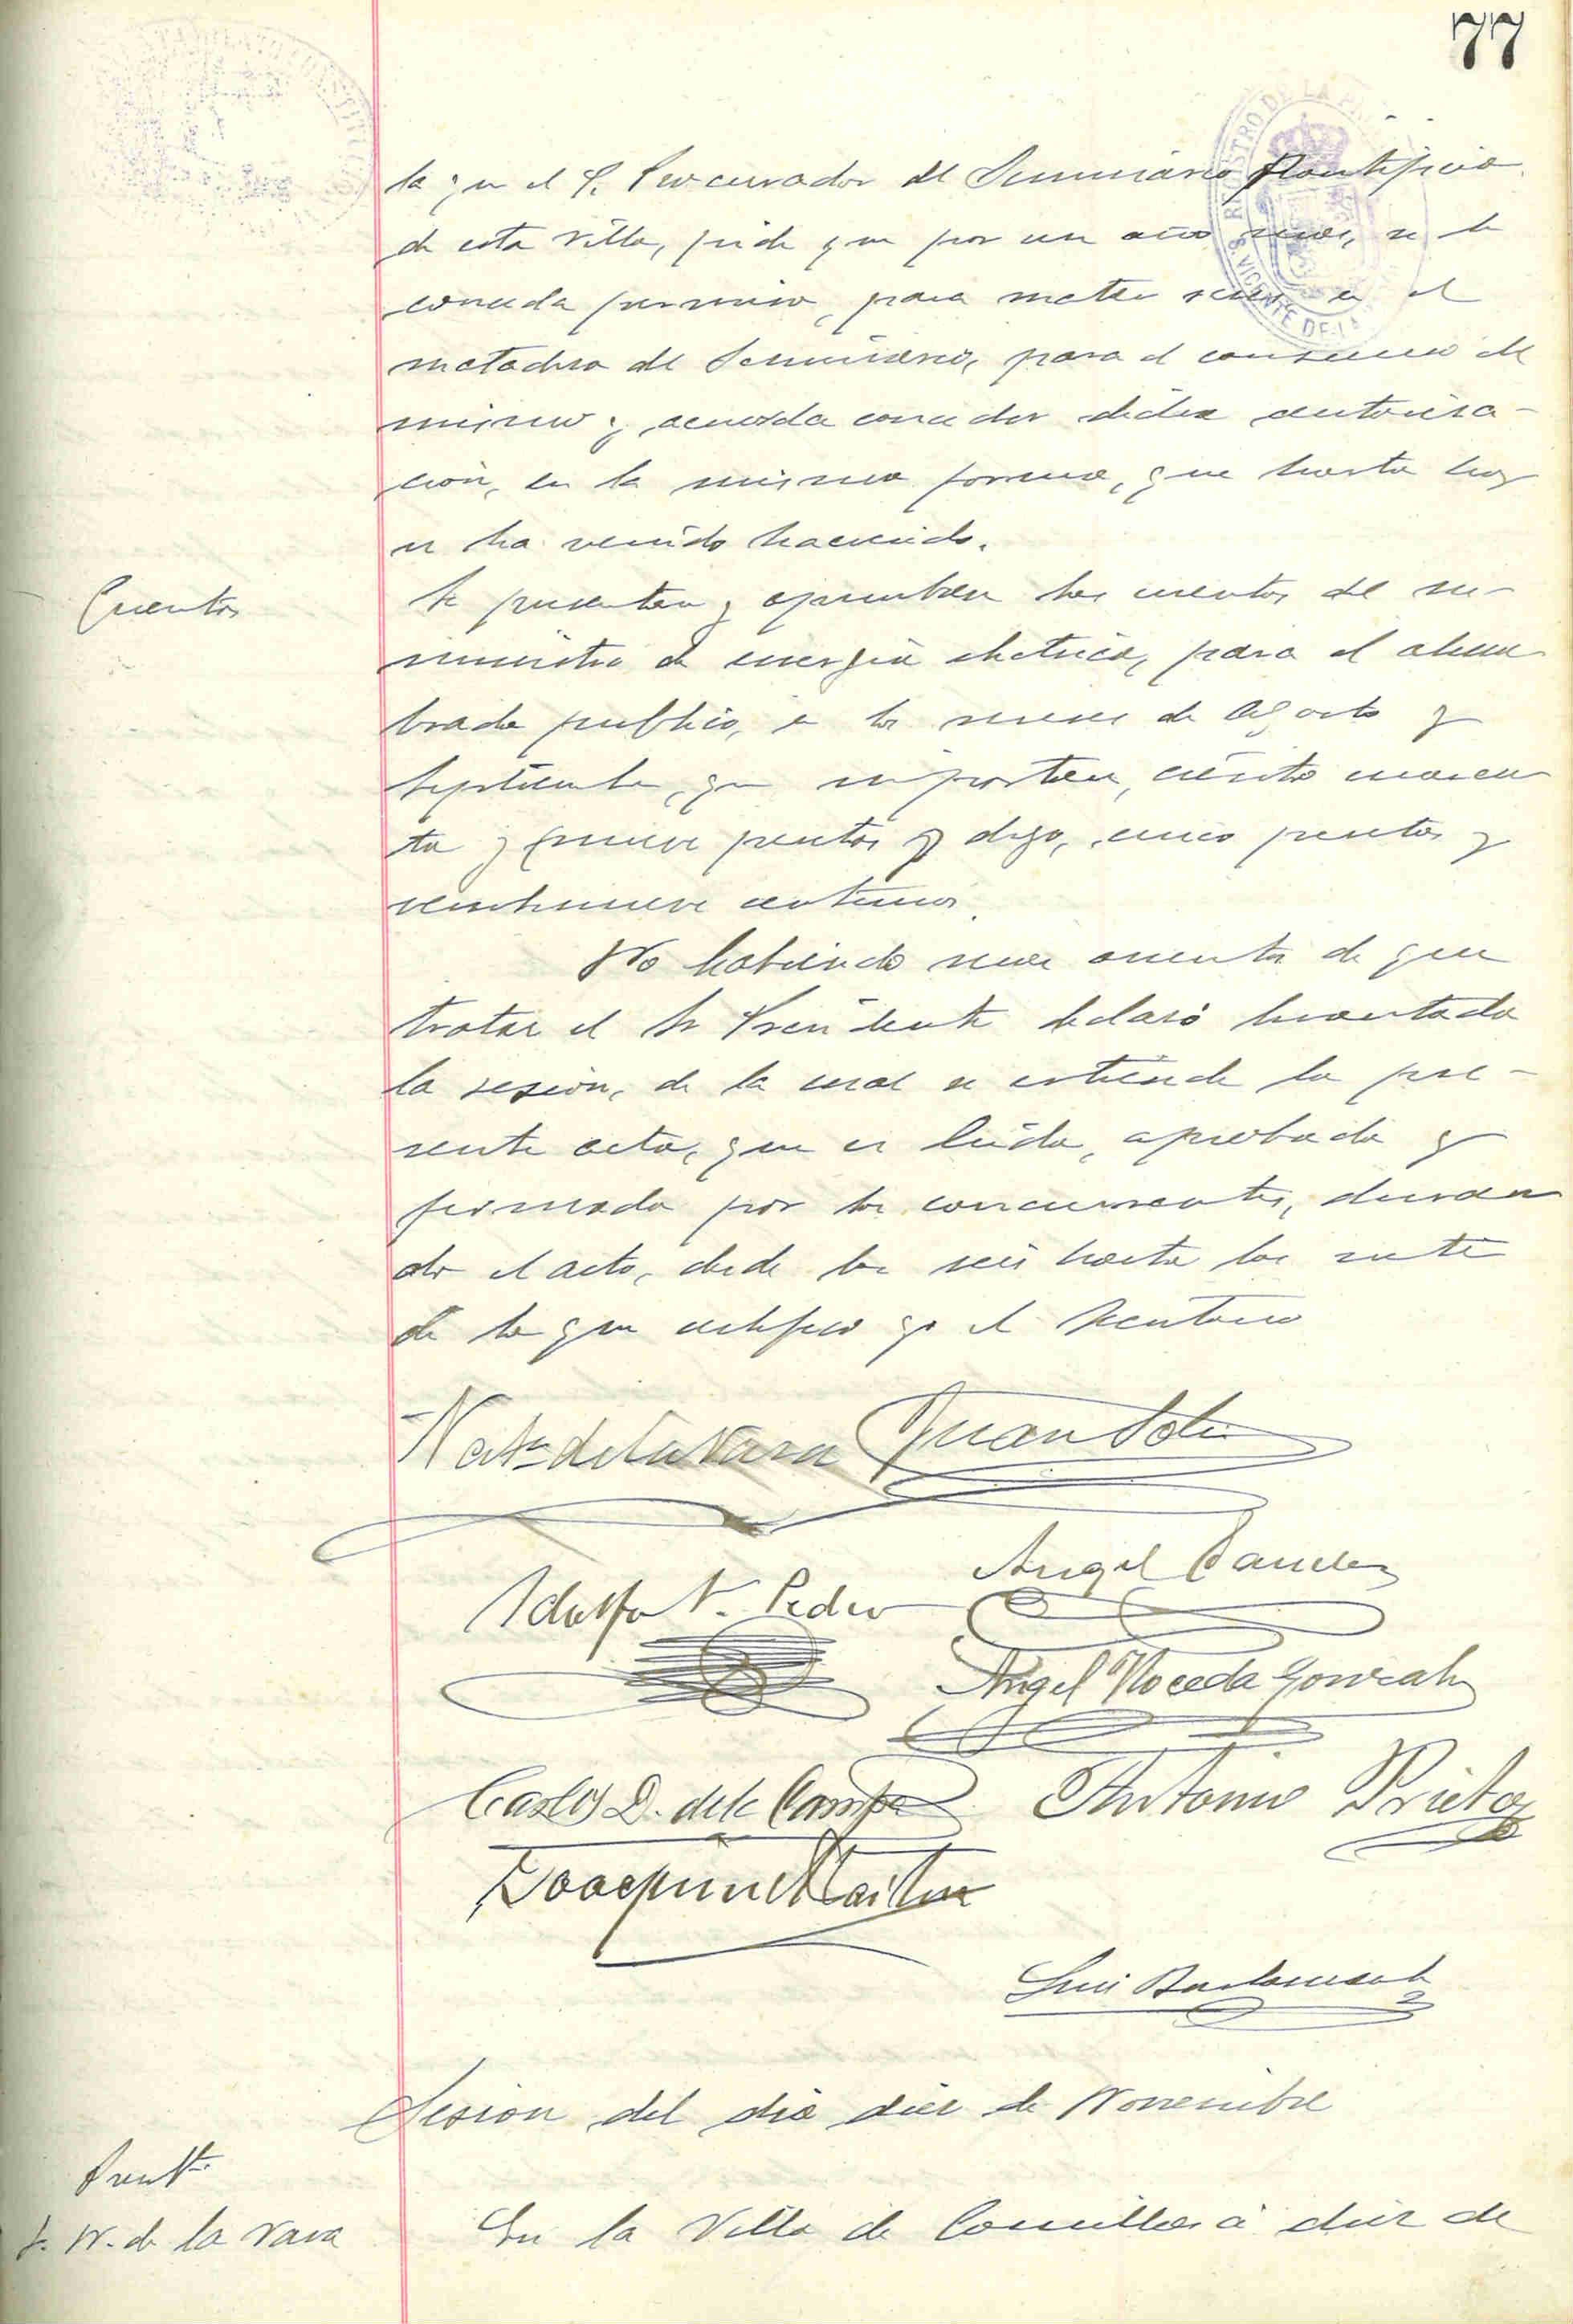 77
REGISTRO DE LA P
S. VICENTE DE LA
la que el P. Procurador del Seminario Pontificio
de esta Villa, pide que por un año mas, se le
conceda permiso, para matar reses en el
matadero del Seminario, para el consumo del
mismo y acuerda conceder dicha autoriza-
ción, en la misma forma, que hasta hoy
se ha venido haciendo.
Cuentas
Se presentan y aprueban las cuentas de su-
ministro de energia electrica, para el alum
brado publico, en los meses de Agosto y
Septiembre, que importan, ciento cuaren
ta y nueve pesetas y digo, cinco pesetas y
veintinueve centimos.
No habiendo mas asuntos de que
tratar el Sr Presidente declaró levantada
la sesión, de la cual se extiende la pre-
sente acta, que es leida, aprobada y
firmada por los concurrentes, duran
do el acto, desde las seis hasta las siete
de lo que certifico yo el Secretario
de la Vara Juan
Angel Sanchez
Adolfo V. Pedro
Angel Noceda Gonzalez
Carlos D. de la Campa Antonio Prieto
Joaquin
Luis
Sesion del dia diez de Noviembre
Presdte
D. N. de la Vara
En la Villa de Comillas á diez de